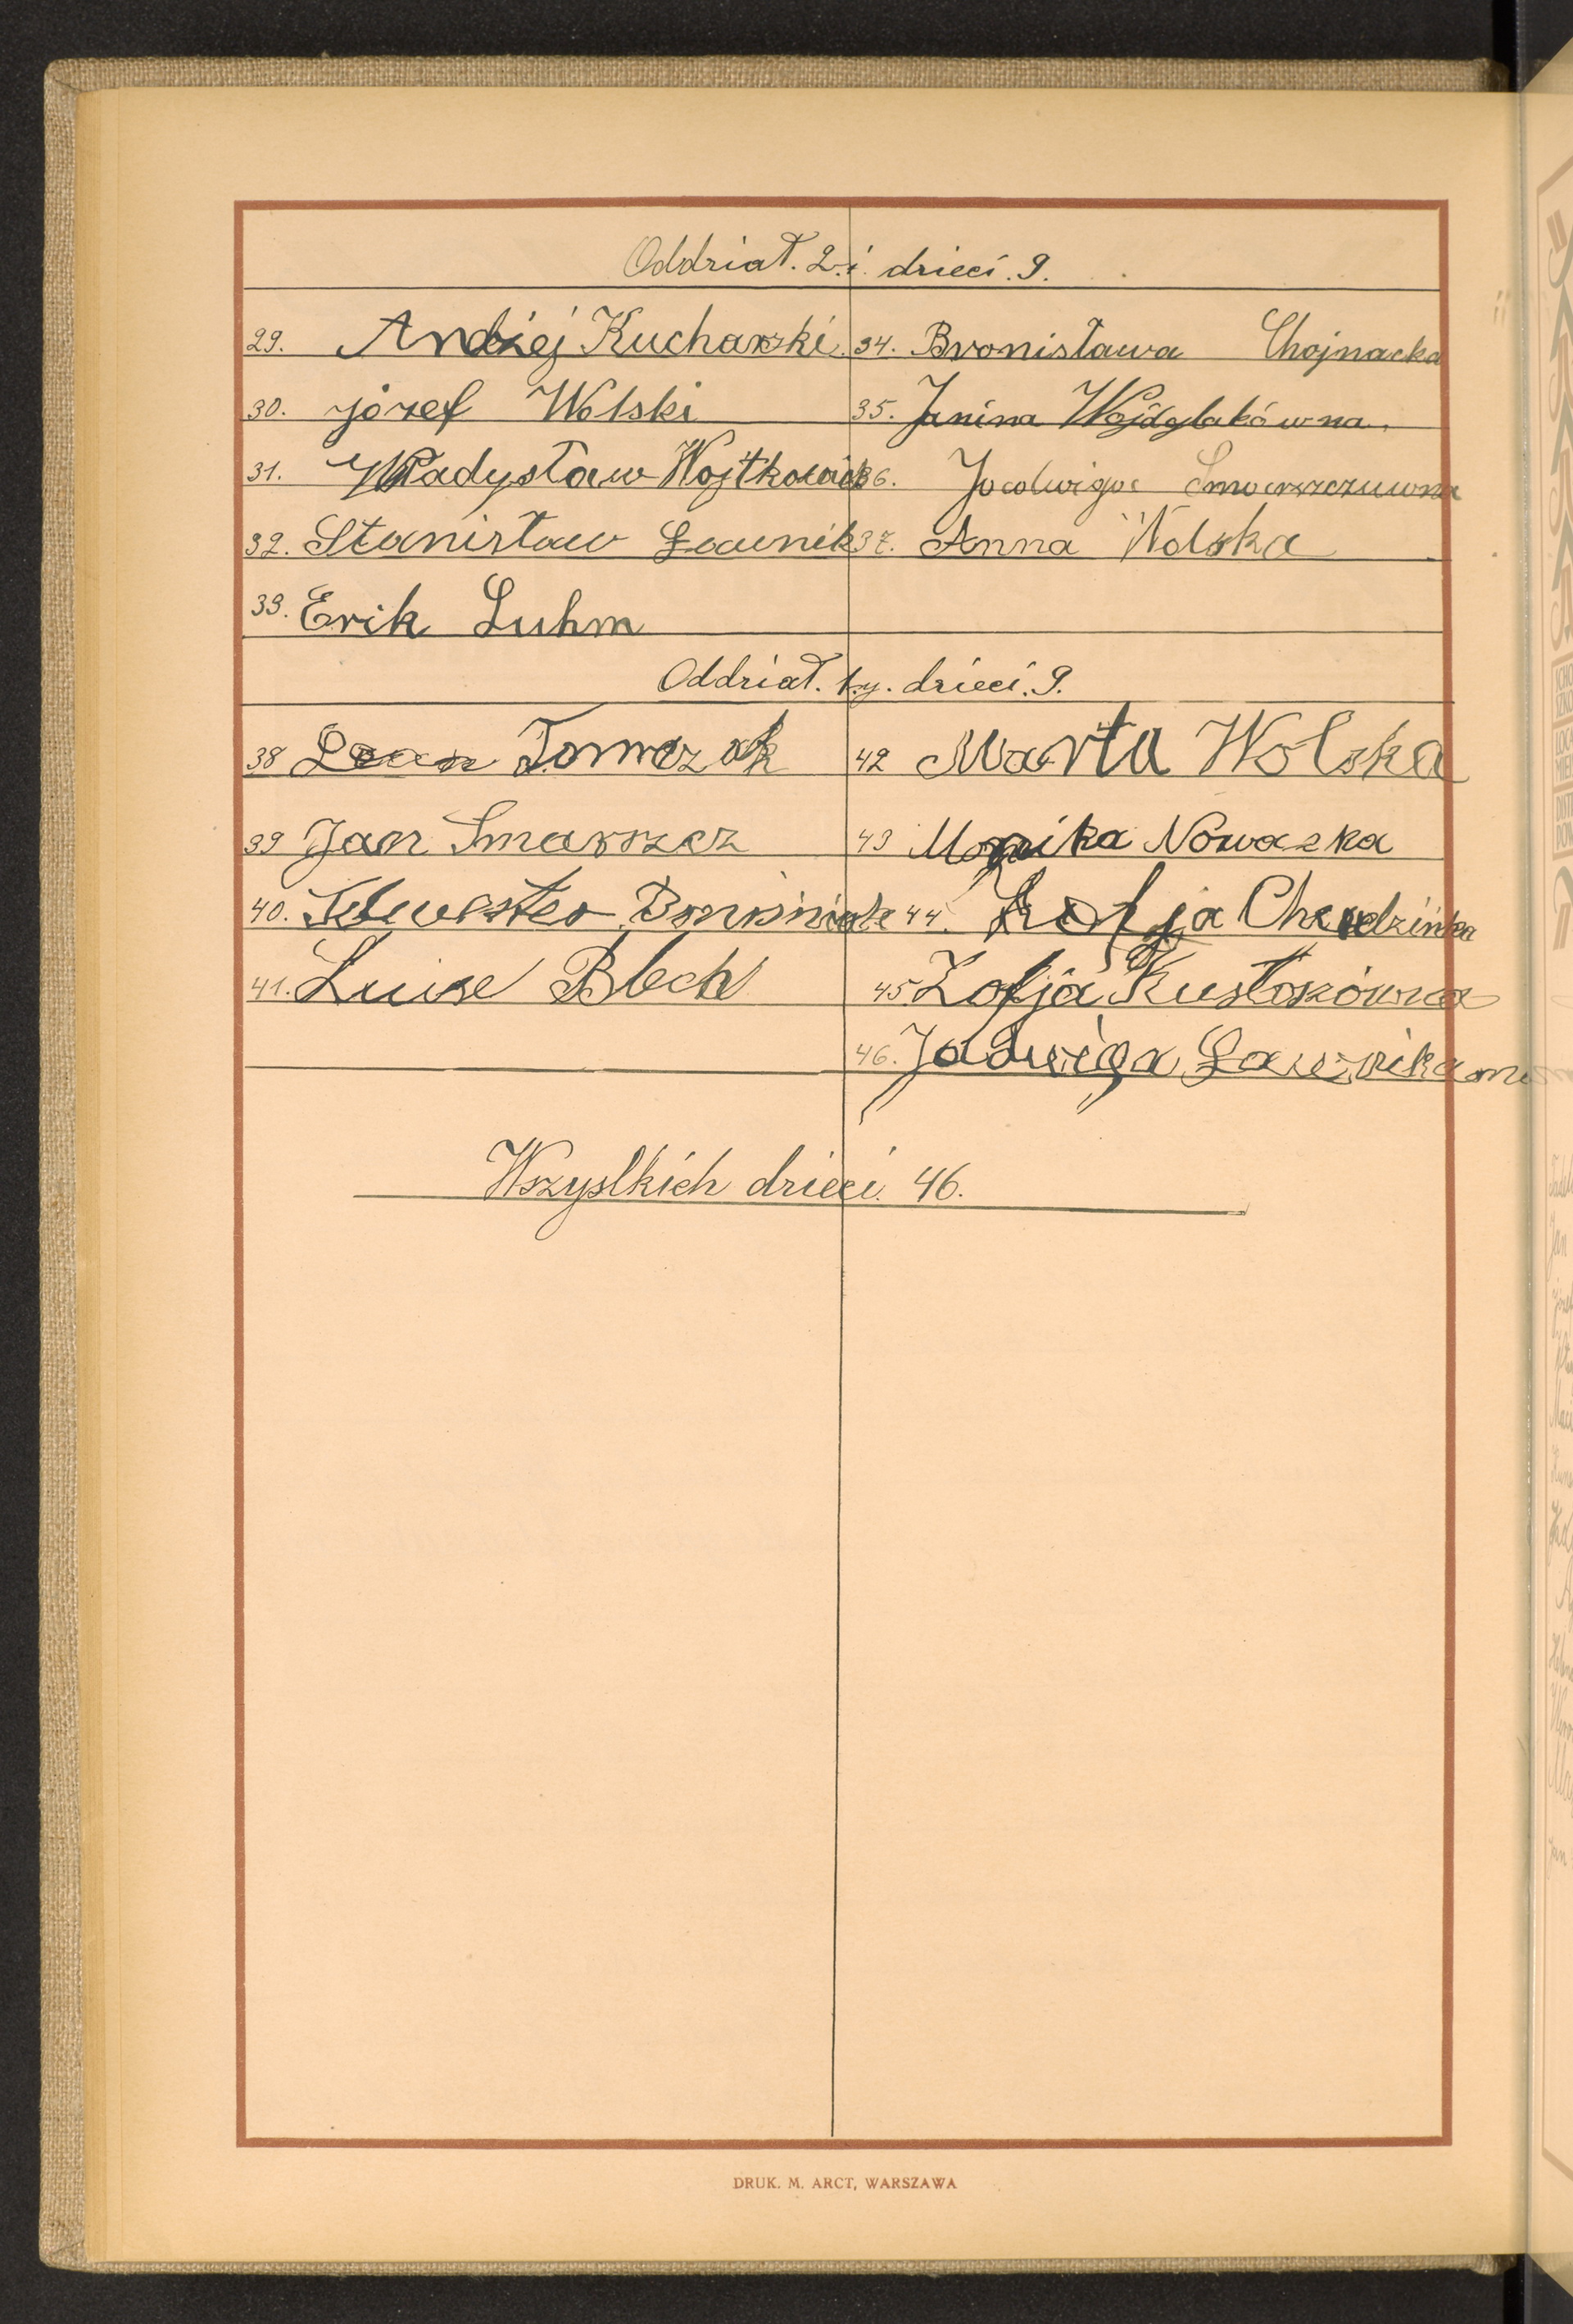 Oddział. 2-i dzieci. 9.
29. Andzej Kucharski.
30. józef Wolski
31. Władysław Wojtkowiak
32. Stanisław Ławnik
33. Erik Luhm
34. Bronisława Chojnacka
35. Janina Wojdylakówna.
36. Jadwiga Smarszczuwna
37. Anna Wolska
Oddział. 1-y. dzieci. 9.
38 Lean Tomczak
39 Jan Smarszcz
40.
41. Luise Blech
42 Marta Wolska
43 Monika Nowaczka
44. Zofja
45 Zofja Kustoszówna
46. Jadwiga
Wszystkich dzieci. 46.
DRUK. M. ARCT, WARSZAWA